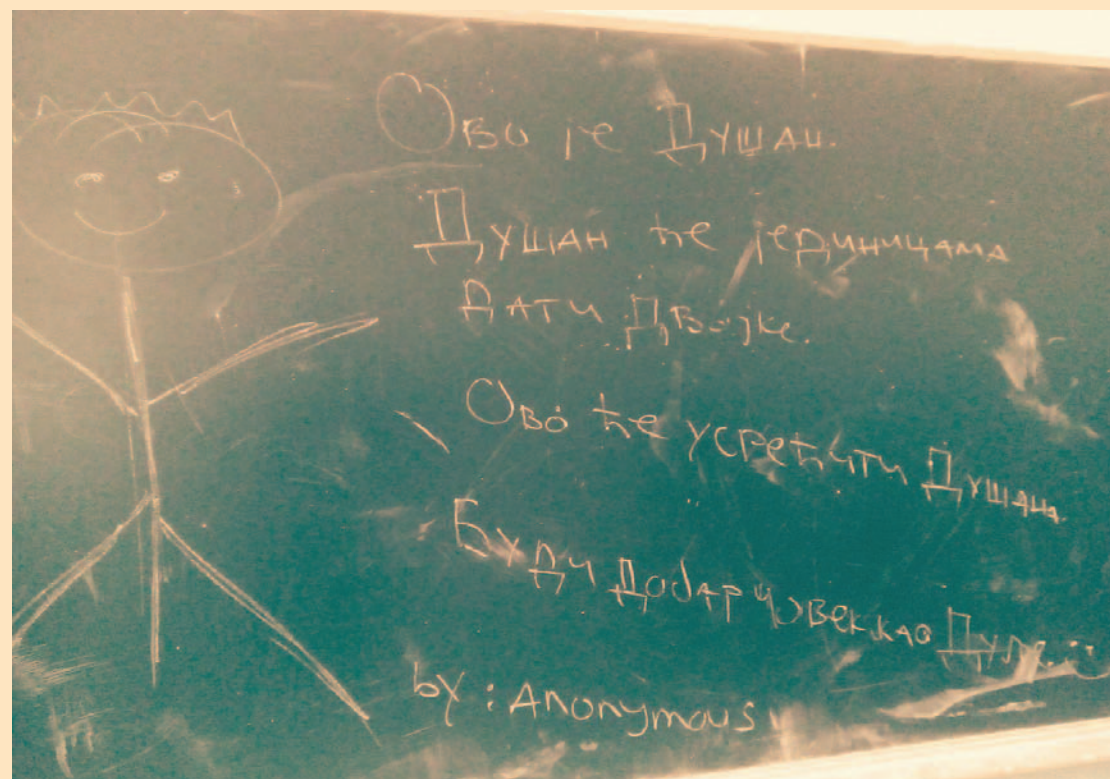 Ово је Душан.
Душан ће јединицама
дати двојке.
Ово ће усрећити Душана.
Буди добар човек као Дуле. :)
by: Anonymous